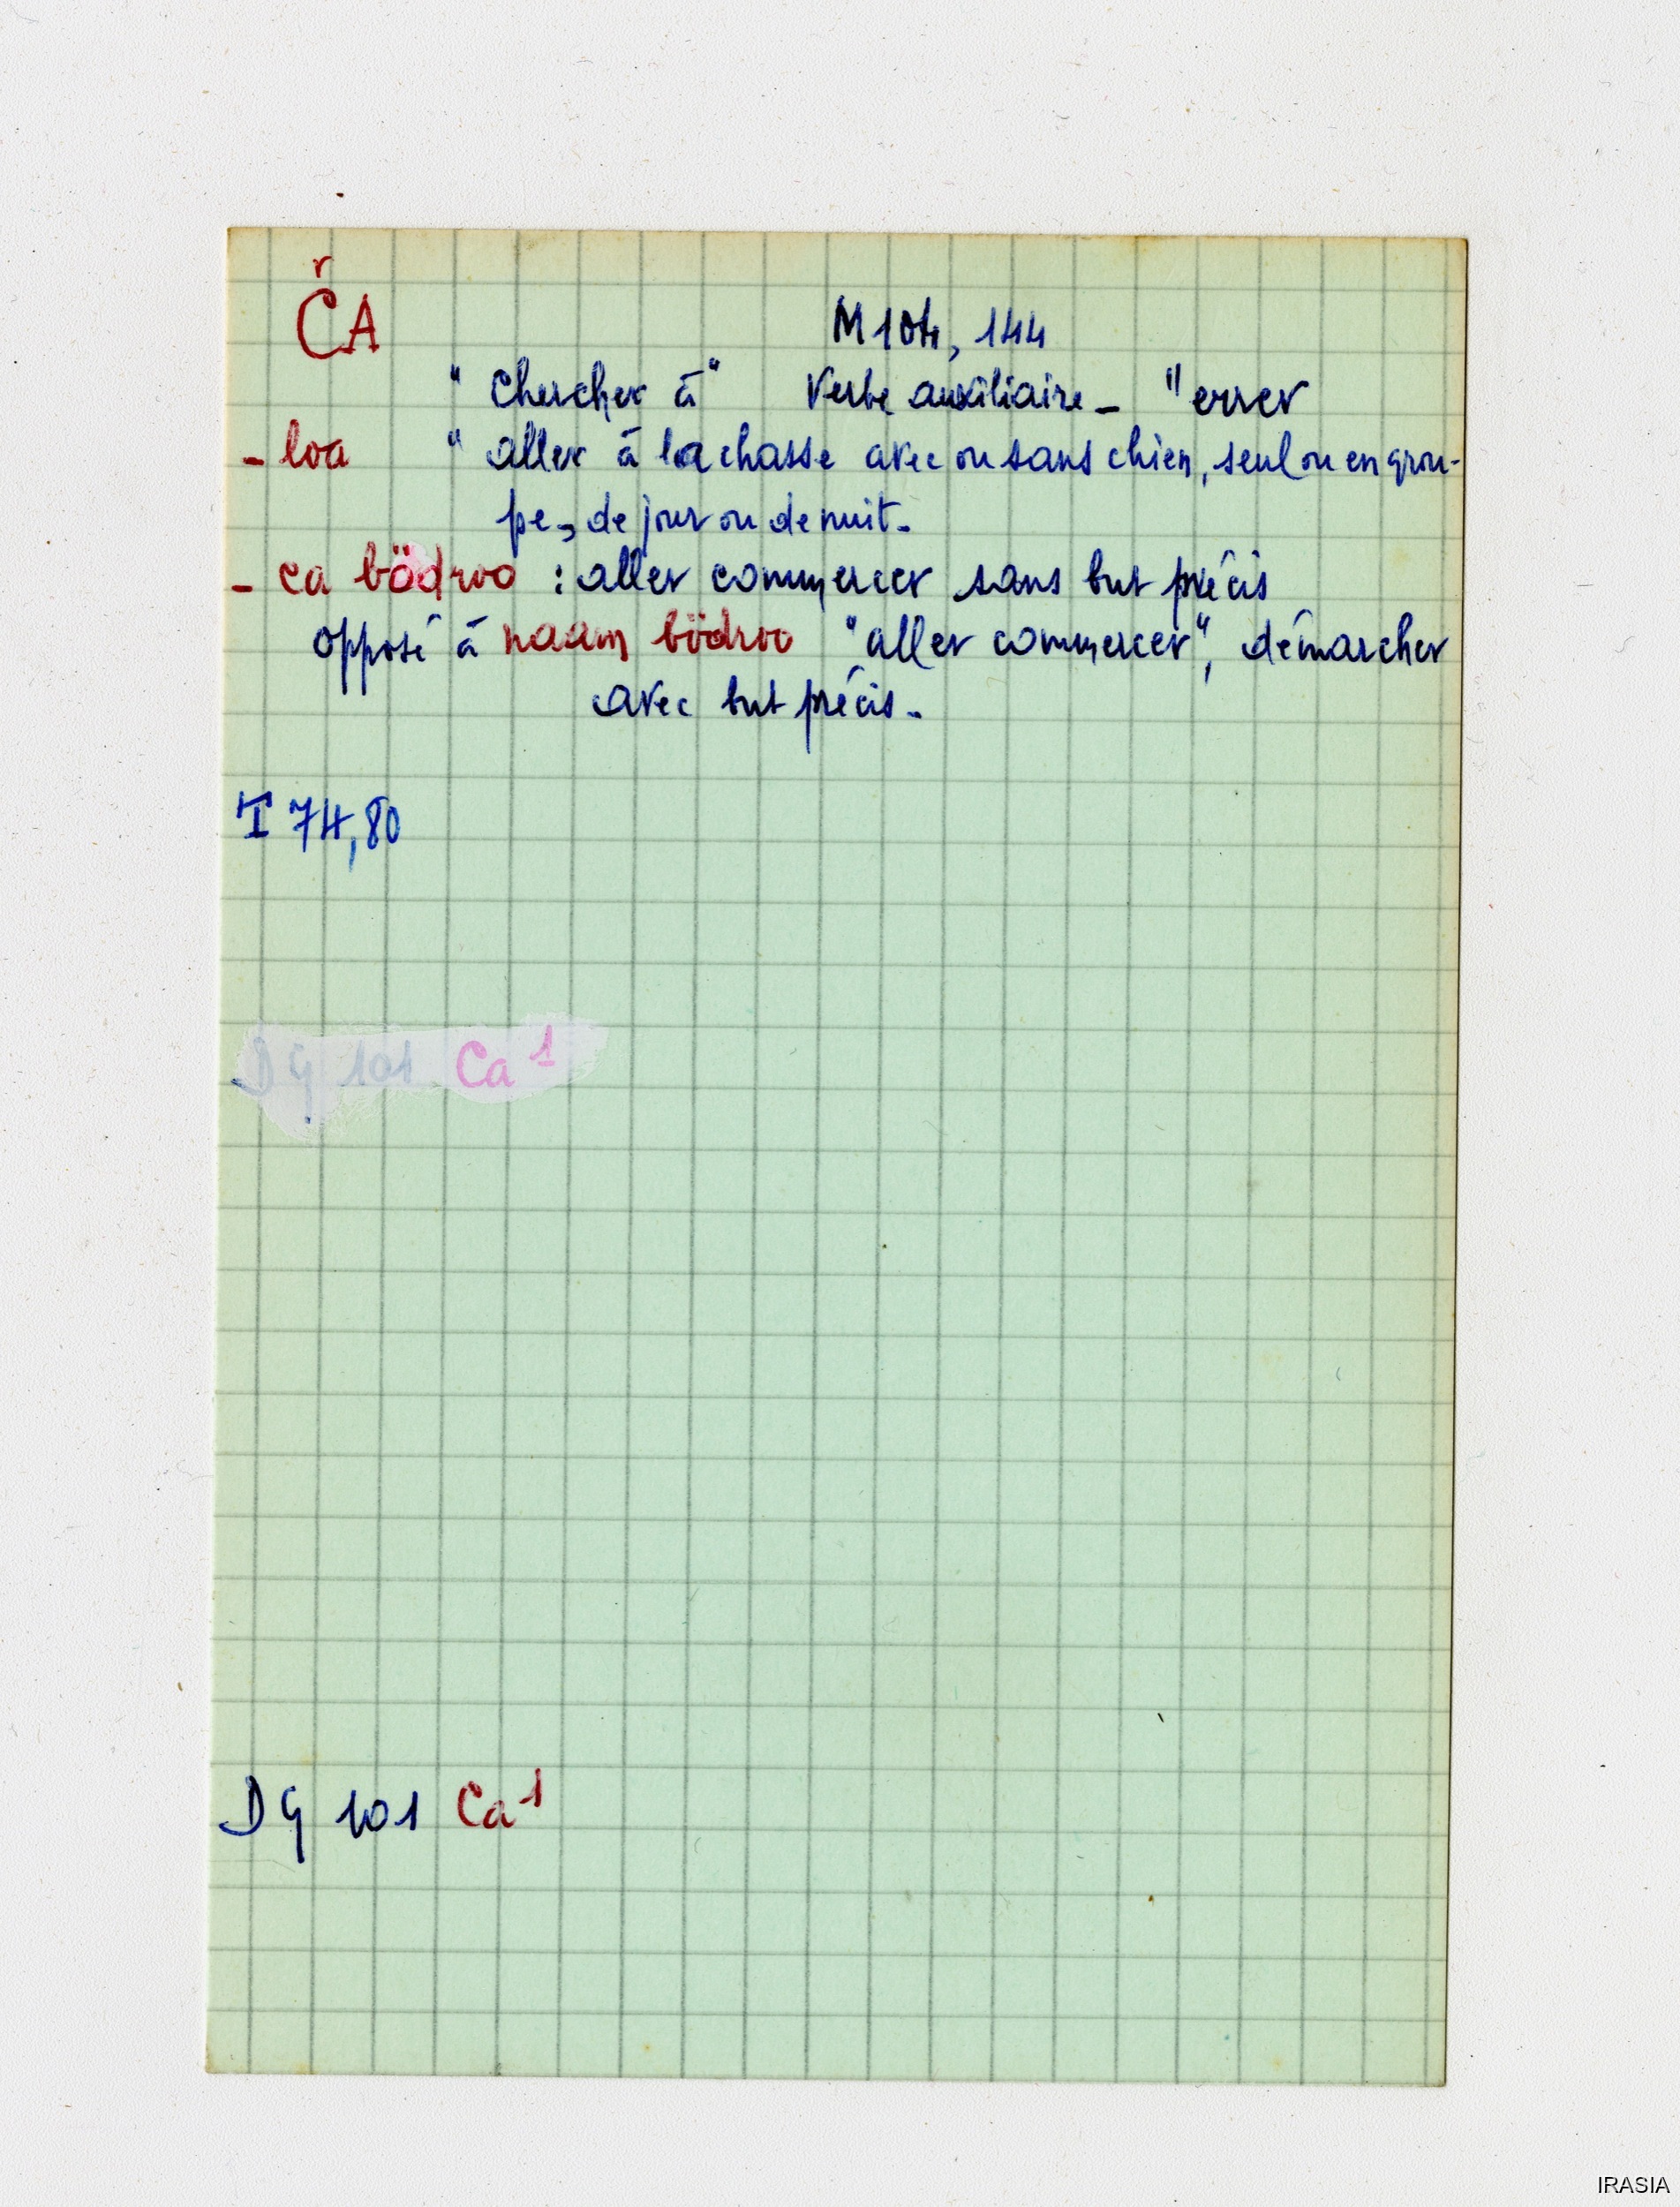 ČA M 104, 144
" Chercher à" Verbe auxiliaire - "errer
- loa " aller à la chasse avec ou sans chien, seul ou en grou-
pe, de jour ou de nuit -
- ca bödroo : aller commercer sans but précis
opposé à naam bödroo "aller commercer", démarcher
avec but précis -
I 74, 80
DG 101 Ca 1
DG 101 Ca 1
IRASIA